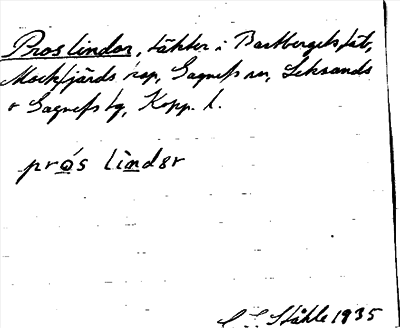 Proslindor, täkter i Bastbergets fät,
Mockfjärds kap, Gagnefs sn, Leksands
o Gagnefs tg, Kopp. l.
prós lindər
Ståhle 1935